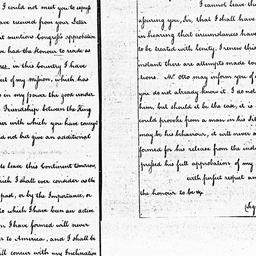 I could not meet you to express
have received from your Letter
it mentions Congress's approbation
we has the Honour to reside as
in this Country I have
of my mission, which has
as in my power the good under
Friendship between the King
with which you have accept
not but give an additional
to leave this Continent tomorrow,
which I shall ever consider as the
past, or by the Importance, or
to which I have been an active
I have formed will never
to America, and I shall be
concur with my Inclination
I cannot leave the
assuring you, Sir, that I shall have
in hearing that circumstances have
to be treated with lenity; I renew this
instant there are attempts made to
tions. Mr. Otto may inform you of
you do not already know it. I do not
him, but should it be the case, it is
could provoke from a man in his sit
may be his behaviour, it will never a
formed for his release from the inde
presses his full approbation of my
with perfect respect an
the honour to be &c